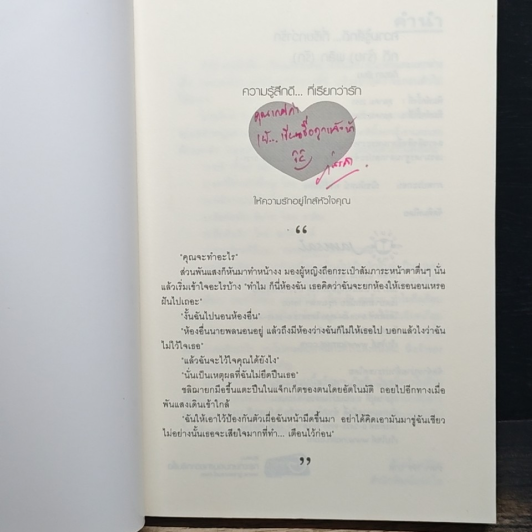 ความรู้สึกดี... ที่เรียกว่ารัก
ให้ความรักอยู่ใกล้หัวใจคุณ
“
'คุณจะทำอะไร'
ส่วนพันแสงก็หันมาทำหน้างง มองผู้หญิงถือกระเป๋าสัมภาระหน้าตาตื่นๆ นั่น
แล้วเริ่มเข้าใจอะไรบ้าง 'ทำไม ก็นี่ห้องฉัน เธอคิดว่าฉันจะยกห้องให้เธอนอนเหรอ
ฝันไปเถอะ'
'งั้นฉันไปนอนห้องอื่น'
'ห้องอื่นนายพลนอนอยู่ แล้วถึงมีห้องว่างฉันก็ไม่ให้เธอไป บอกแล้วไงว่าฉัน
ไม่ไว้ใจเธอ'
'แล้วฉันจะไว้ใจคุณได้ยังไง'
'นั่นเป็นเหตุผลที่ฉันไม่ยึดปืนเธอ'
ชลิมายกมือขึ้นแตะปืนในแจ็กเก็ตของตนโดยอัตโนมัติ ถอยไปอีกทางเมื่อ
พันแสงเดินเข้าใกล้
'ฉันให้เอาไว้ป้องกันตัวเมื่อฉันหน้ามืดขึ้นมา อย่าได้คิดเอามันมาขู่ฉันเชียว
ไม่อย่างนั้นเธอจะเสียใจมากที่ทำ... เตือนไว้ก่อน'
”